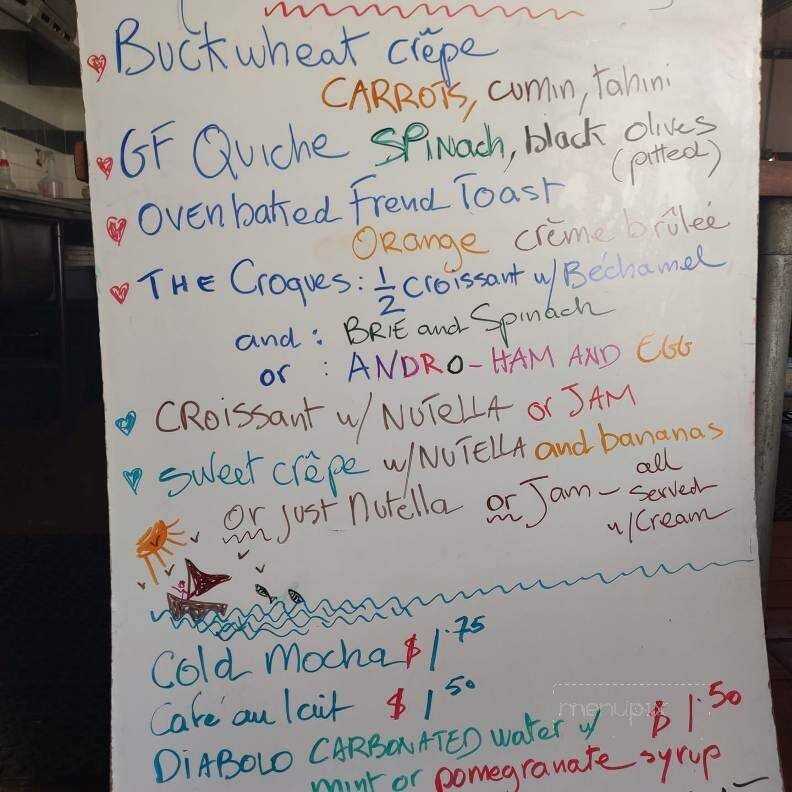 Buckwheat crêpe
CARROTS, cumin, tahini
GF Quiche SPINach, black olives
(pitted)
OVEN baked Frend Toast
Orange crème brûlée
THE Croques: 1/2 croissant w/ Béchamel
and: BRIE and Spinach
or : ANDRO-HAM AND EGG
CROissant w/ NUTELLA or JAM
sweet crêpe w/ NUTELLA and bananas
or just Nutella or Jam - all
served
w/ Cream
Cold Mocha $1.75
Café au lait $1.50
DIABOLO CARBONATED water w/ $1.50
mint or pomegranate syrup
menupix